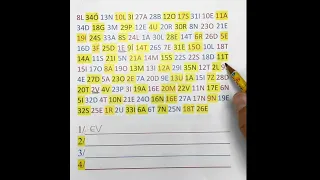 8L 34O 13N 10L 3I 27A 28B 12O 17S 31I 10E 11A
34D 18G 3M 29P 12E 4U 20R 30R 8N 23O 21E
19I 24S 33A 8S 24L 1A 30L 28E 14T 6R 26D 5E
16D 3F 25D 1E 9I 14T 26S 7E 31E 15O 10L 18T
14A 11S 21I 5N 21A 14M 15S 22S 22S 18D 11T
15I 17O 8A 19O 13M 13I 12A 29I 35N 12T 2L
4E 27D 5A 23O 2T 30A 2E 20U 13U 1A 15I 7Z 28D
20T 2V 4V 23P 3I 19A 16E 20M 22V 11N 17E 6N
5I 32O 4T 10N 21E 24O 16N 16E 27A 17N 9N 19E
32S 25E 1R 2U 33I 6A 6T 7N 25N 18T 26E
1/ EV
2/
3/
4/